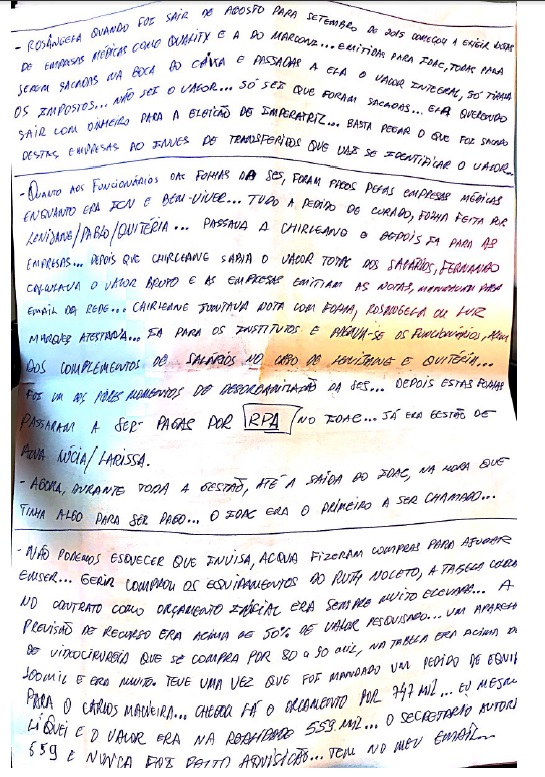 - ROSÂNGELA QUANDO FOI SAIR DE AGOSTO PARA SETEMBRO DE 2015 COMEÇOU A EXIGIR NOTAS
DE EMPRESAS MÉDICAS COMO QUALITY E A DO MARCONI... EMITIDAS PARA IDAC, TODAS PARA
SEREM SACADAS NA BOCA DO CAIXA E PASSADAS A ELA O VALOR INTEGRAL, SÓ TIRAVA
OS IMPOSTOS... NÃO SEI O VALOR... SÓ SEI QUE FORAM SACADAS... ELA QUERENDO
SAIR COM DINHEIRO PARA A ELEIÇÃO DE IMPERATRIZ... BASTA PEGAR O QUE FOI SACADO
DESTAS EMPRESAS AO INVES DE TRANSFERIDOS QUE VAI SE IDENTIFICAR O VALOR...
- QUANTO AOS FUNCIONÁRIOS DAS FOLHAS DA SES, FORAM PAGOS PELAS EMPRESAS MÉDICAS
ENQUANTO ERA ICN E BEM-VIVER... TUDO A PEDIDO DE CURADO, FOLHA FEITA POR
LENIJANE/PABLO/QUITÉRIA... PASSAVA A CHIRLEANE E DEPOIS IA PARA AS
EMPRESAS... DEPOIS QUE CHIRLEANE SABIA O VALOR TOTAL DOS SALÁRIOS, FERNANDO
COLOCAVA O VALOR BRUTO E AS EMPRESAS EMITIAM AS NOTAS, MANDAVAM PARA
EMAIL DA REDE... CHIRLEANE JUNTAVA NOTA COM FOLHA, ROSANGELA OU LUIZ
MARQUES ATESTAVA... IA PARA OS INSTITUTOS E PAGAVA-SE OS FUNCIONÁRIOS, ALEM
DOS COMPLEMENTOS DE SALÁRIOS NO CASO DE LENIJANE E QUITÉRIA...
FOI UM DOS PIORES MOMENTOS DE DESORGANIZAÇÃO DA SES... DEPOIS ESTAS FOLHAS
PASSARAM A SER PAGAS POR RPA NO IDAC... JÁ ERA GESTÃO DE
ANA LÚCIA/LARISSA.
- AGORA, DURANTE TODA A GESTÃO, ATÉ A SAÍDA DO IDAC, NA HORA QUE
TINHA ALGO PARA SER PAGO... O IDAC ERA O PRIMEIRO A SER CHAMADO...
- NÃO PODEMOS ESQUECER QUE INVISA, ACQUA FIZERAM COMPRAS PARA AJUDAR
EMSER... GERIR COMPROU OS EQUIPAMENTOS DO RUTH NOLETO, A TABELA
NO CONTRATO COMO ORÇAMENTO INICIAL ERA SEMPRE MUITO ELEVADO... A
PREVISÃO DE RECURSO ERA ACIMA DE 50% DE VALOR PESQUISADO... UM
DE VIDEOCIRURGIA QUE SE COMPRA POR 80 a 90 MIL, NA TABELA ERA ACIMA DE
MIL E ERA MUITO. TEVE UMA VEZ QUE FOI MANDADO UM PEDIDO DE
PARA O CARLOS MACIEIRA... CHEGOU LÁ O ORÇAMENTO POR 747 MIL... EU MESMO
LIGUEI E O VALOR ERA NA REALIDADE 559 MIL... O SECRETÁRIO
559 E NUNCA FOI FEITO AQUISIÇÃO... TEM NO MEU EMAIL...